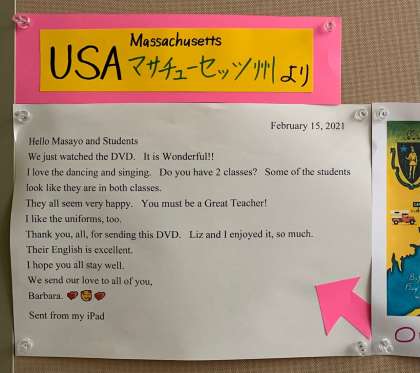 Massachusetts
USA マサチューセッツ州より
February 15, 2021
Hello Masayo and Students
We just watched the DVD. It is Wonderful!!
I love the dancing and singing. Do you have 2 classes? Some of the students
look like they are in both classes.
They all seem very happy. You must be a Great Teacher!
I like the uniforms, too.
Thank you, all, for sending this DVD. Liz and I enjoyed it, so much.
Their English is excellent.
I hope you all stay well.
We send our love to all of you,
Barbara. 💝🥰💝
Sent from my iPad